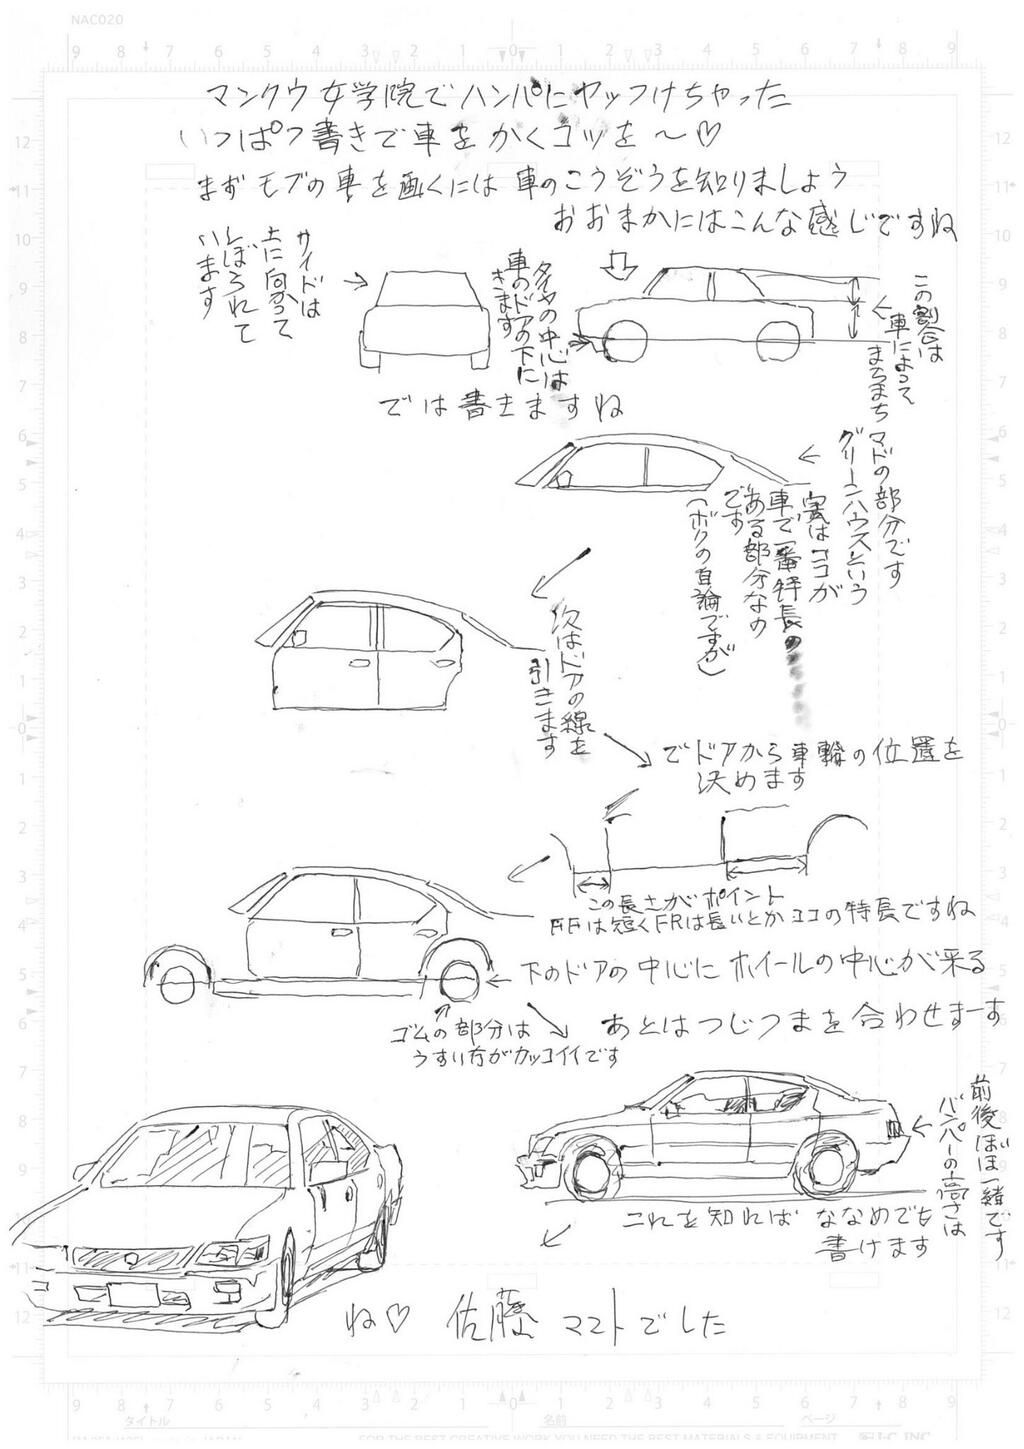 NAC020
9 8 7 6 5 4 3 2 1 0 1 2 3 4 5 6 7 8 9
マンクウ女学院でハンパにヤッつけちゃった
いっぱつ書きで車をかくコツを～♡
まずモブの車を画くには車のこうぞうを知りましょう
おおまかにはこんな感じですね
サイドは
上に向かって
しぼられて
います
タイヤの中心は
車のドアの下に
きます
この割合は
車によって
まちまち
では書きますね
マドの部分です
グリーンハウスという
実はココが
車で一番特長の
ある部分なの
です
(ボクの自論ですが)
次はドアの線を
引きます
でドアから車輪の位置を
決めます
この長さがポイント
FFは短くFRは長いとかココの特長ですね
下のドアの中心にホイールの中心が来る
ゴムの部分は
うすい方がカッコイイです
あとはつじつまを合わせまーす
前後ほぼ一緒です
バンパーの高さは
これを知れば ななめでも
書けます
ね♡ 佐藤 マコトでした
9 8 7 6 5 4 3 2 1 0 1 2 3 4 5 6 7 8 9
タイトル 名前 ページ
FOR THE BEST CREATIVE WORK YOU NEED THE BEST MATERIALS & EQUIPMENT